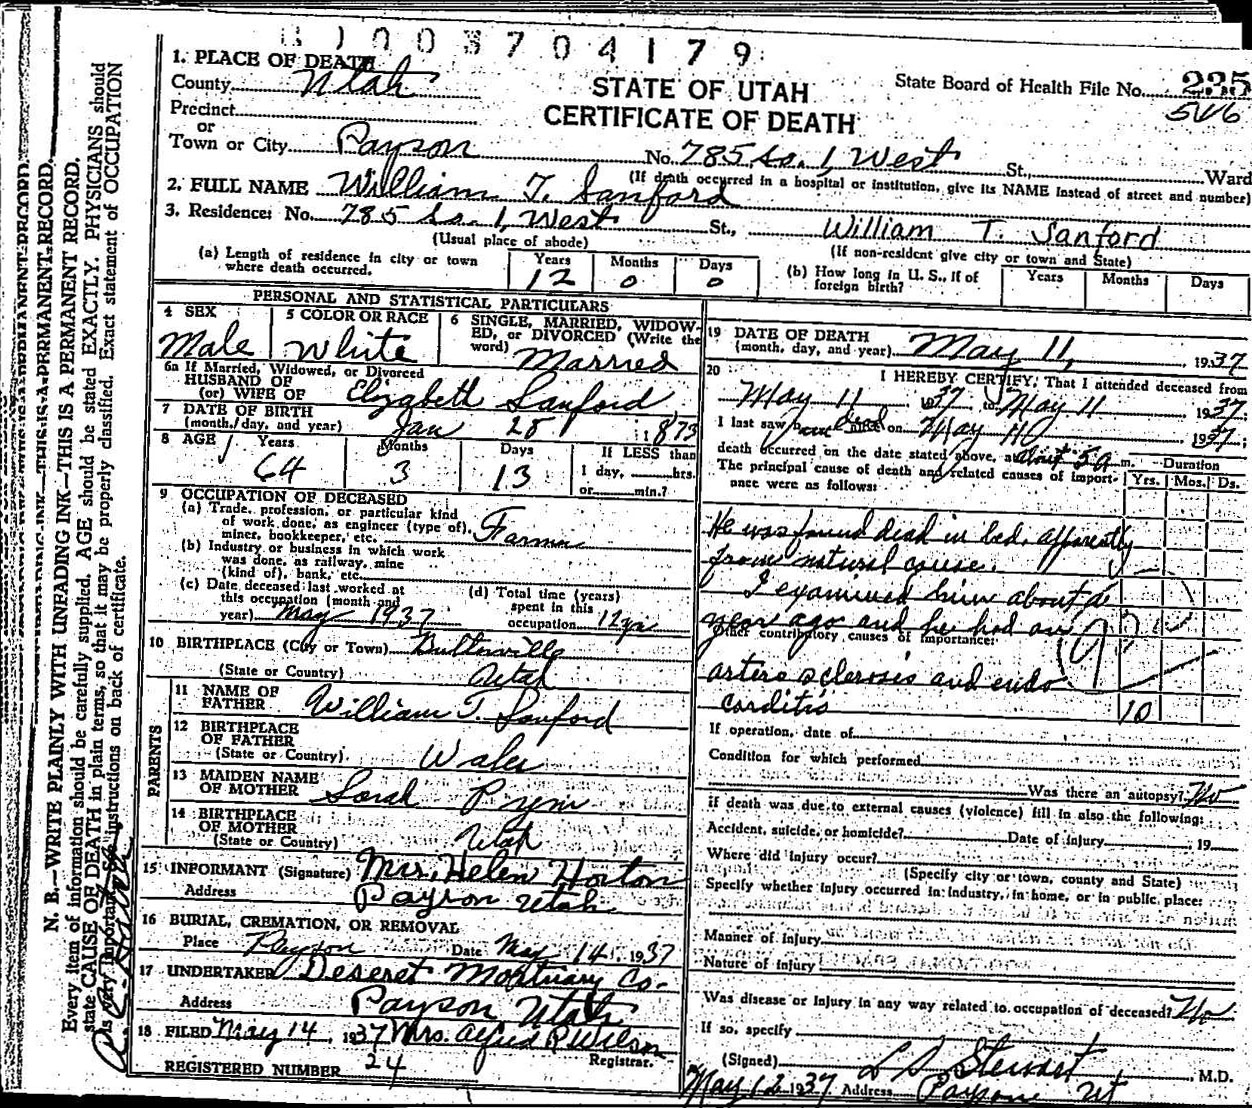 1003704179
1. PLACE OF DEATH
County Utah
Precinct
or
Town or City Payson
STATE OF UTAH
CERTIFICATE OF DEATH
State Board of Health File No. 235
No. 785 So. 1, West St., Ward
(If death occurred in a hospital or institution, give its NAME instead of street and number)
2. FULL NAME William T. Sanford
3. Residence: No. 785 So. 1, West St., William T. Sanford
(Usual place of abode) (If non-resident give city or town and State)
(a) Length of residence in city or town where death occurred. Years 12 Months 0 Days 0
(b) How long in U. S., if of foreign birth? Years Months Days
PERSONAL AND STATISTICAL PARTICULARS
4 SEX Male
5 COLOR OR RACE White
6 SINGLE, MARRIED, WIDOWED, or DIVORCED (Write the word) Married
6a If Married, Widowed, or Divorced
HUSBAND OF
(or) WIFE OF Elizabeth Sanford
7 DATE OF BIRTH
(month, day, and year) Jan 28, 1873
8 AGE Years 64 Months 3 Days 13 If LESS than 1 day, hrs. or min.?
9 OCCUPATION OF DECEASED
(a) Trade, profession, or particular kind
of work done, as engineer (type of),
miner, bookkeeper, etc. Farmer
(b) Industry or business in which work
was done, as railway, mine
(kind of), bank, etc.
(c) Date deceased last worked at
this occupation (month and
year) May 1937
(d) Total time (years)
spent in this
occupation 12 yrs
10 BIRTHPLACE (City or Town)
(State or Country) Utah
PARENTS
11 NAME OF
FATHER William T. Sanford
12 BIRTHPLACE
OF FATHER
(State or Country) Wales
13 MAIDEN NAME
OF MOTHER Sarah
14 BIRTHPLACE
OF MOTHER
(State or Country) Utah
15 INFORMANT (Signature) Mrs. Helen Horton
Address Payson Utah
16 BURIAL, CREMATION, OR REMOVAL
Place Payson Date May 14 1937
17 UNDERTAKER Deseret Mortuary Co-
Address Payson Utah
18 FILED May 14, 1937 Mrs. Alfred P Wilson
Registrar.
REGISTERED NUMBER 24
19 DATE OF DEATH
(month, day, and year) May 11, 1937
20 I HEREBY CERTIFY, That I attended deceased from
May 11 1937 to May 11 1937
I last saw him dead on May 11 1937;
death occurred on the date stated above, at about 5 a m. Duration
The principal cause of death and related causes of importance were as follows: Yrs. Mos. Ds.
He was found dead in bed, apparently
from natural cause.
I examined him about a
year ago and he had an
Other contributory causes of importance:
arterio sclerosis and endo
carditis 10
If operation, date of
Condition for which performed
Was there an autopsy? No
If death was due to external causes (violence) fill in also the following:
Accident, suicide, or homicide? Date of injury 19
Where did injury occur?
(Specify city or town, county and State)
Specify whether injury occurred in industry, in home, or in public place:
Manner of injury
Nature of injury
Was disease or injury in any way related to occupation of deceased? No
If so, specify
(Signed) L D Stewart, M.D.
May 12 1937 Address Payson Ut
N. B.—WRITE PLAINLY WITH UNFADING INK—THIS IS A PERMANENT RECORD.
Every item of information should be carefully supplied. AGE should be stated EXACTLY. PHYSICIANS should
state CAUSE OF DEATH in plain terms, so that it may be properly classified. Exact statement of OCCUPATION
is very important. See instructions on back of certificate.